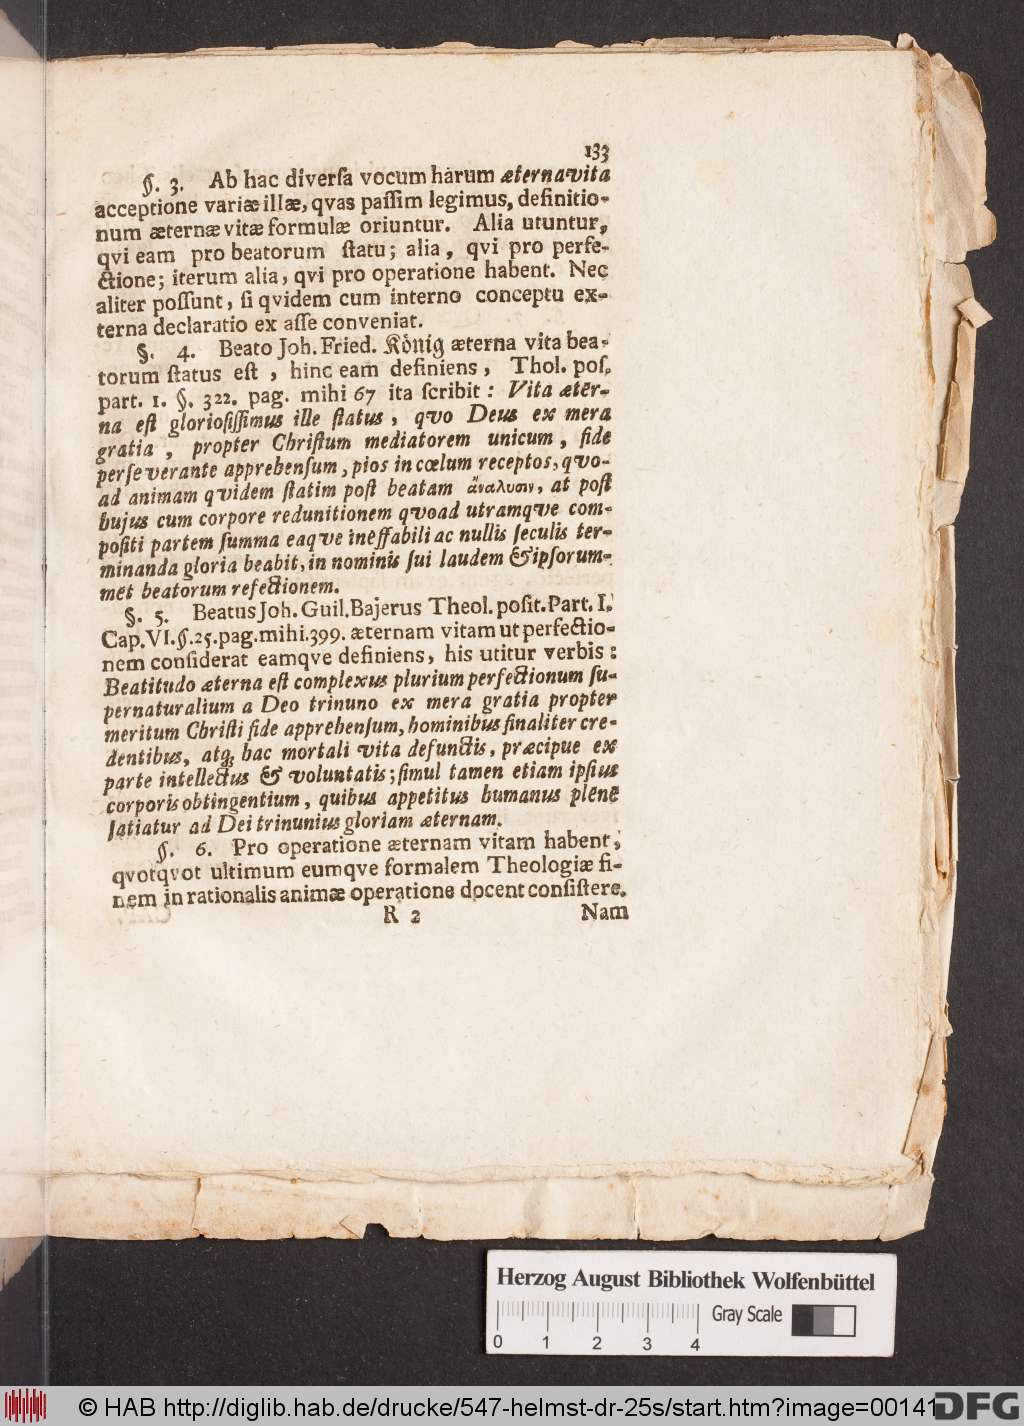 133
§. 3. Ab hac diverſa vocum harum æterna vita
acceptione variæ illæ, qvas paſſim legimus, definitio-
num æternæ vitæ formulæ oriuntur. Alia utuntur,
qvi eam pro beatorum ſtatu; alia, qvi pro perfe-
ctione; iterum alia, qvi pro operatione habent. Nec
aliter poſſunt, ſi qvidem cum interno conceptu ex-
terna declaratio ex aſſe conveniat.
§. 4. Beato Joh. Fried. König æterna vita bea-
torum ſtatus eſt, hinc eam definiens, Thol. poſ.
part. 1. §. 322. pag. mihi 67 ita ſcribit: Vita æter-
na eſt glorioſiſſimus ille ſtatus, qvo Deus ex mera
gratia, propter Chriſtum mediatorem unicum, fide
perſeverante apprehenſum, pios in cœlum receptos, qvo-
ad animam qvidem ſtatim poſt beatam ἀνάλυσιν, at poſt
hujus cum corpore redunitionem qvoad utramqve com-
poſiti partem ſumma eaqve ineffabili ac nullis ſeculis ter-
minanda gloria beabit, in nominis ſui laudem & ipſorum-
met beatorum refectionem.
§. 5. Beatus Joh. Guil. Bajerus Theol. poſit. Part. I.
Cap. VI. §. 25. pag. mihi. 399. æternam vitam ut perfectio-
nem conſiderat eamqve definiens, his utitur verbis:
Beatitudo æterna eſt complexus plurium perfectionum ſu-
pernaturalium a Deo trinuno ex mera gratia propter
meritum Chriſti fide apprehenſum, hominibus finaliter cre-
dentibus, atq; hac mortali vita defunctis, præcipue ex
parte intellectus & voluntatis; ſimul tamen etiam ipſius
corporis obtingentium, quibus appetitus humanus plene
ſatiatur ad Dei trinunius gloriam æternam.
§. 6. Pro operatione æternam vitam habent,
qvotqvot ultimum eumqve formalem Theologiæ fi-
nem in rationalis animæ operatione docent conſiſtere.
R 2 Nam
Herzog August Bibliothek Wolfenbüttel
Gray Scale
0 1 2 3 4
© HAB http://diglib.hab.de/drucke/547-helmst-dr-25s/start.htm?image=00141
DFG